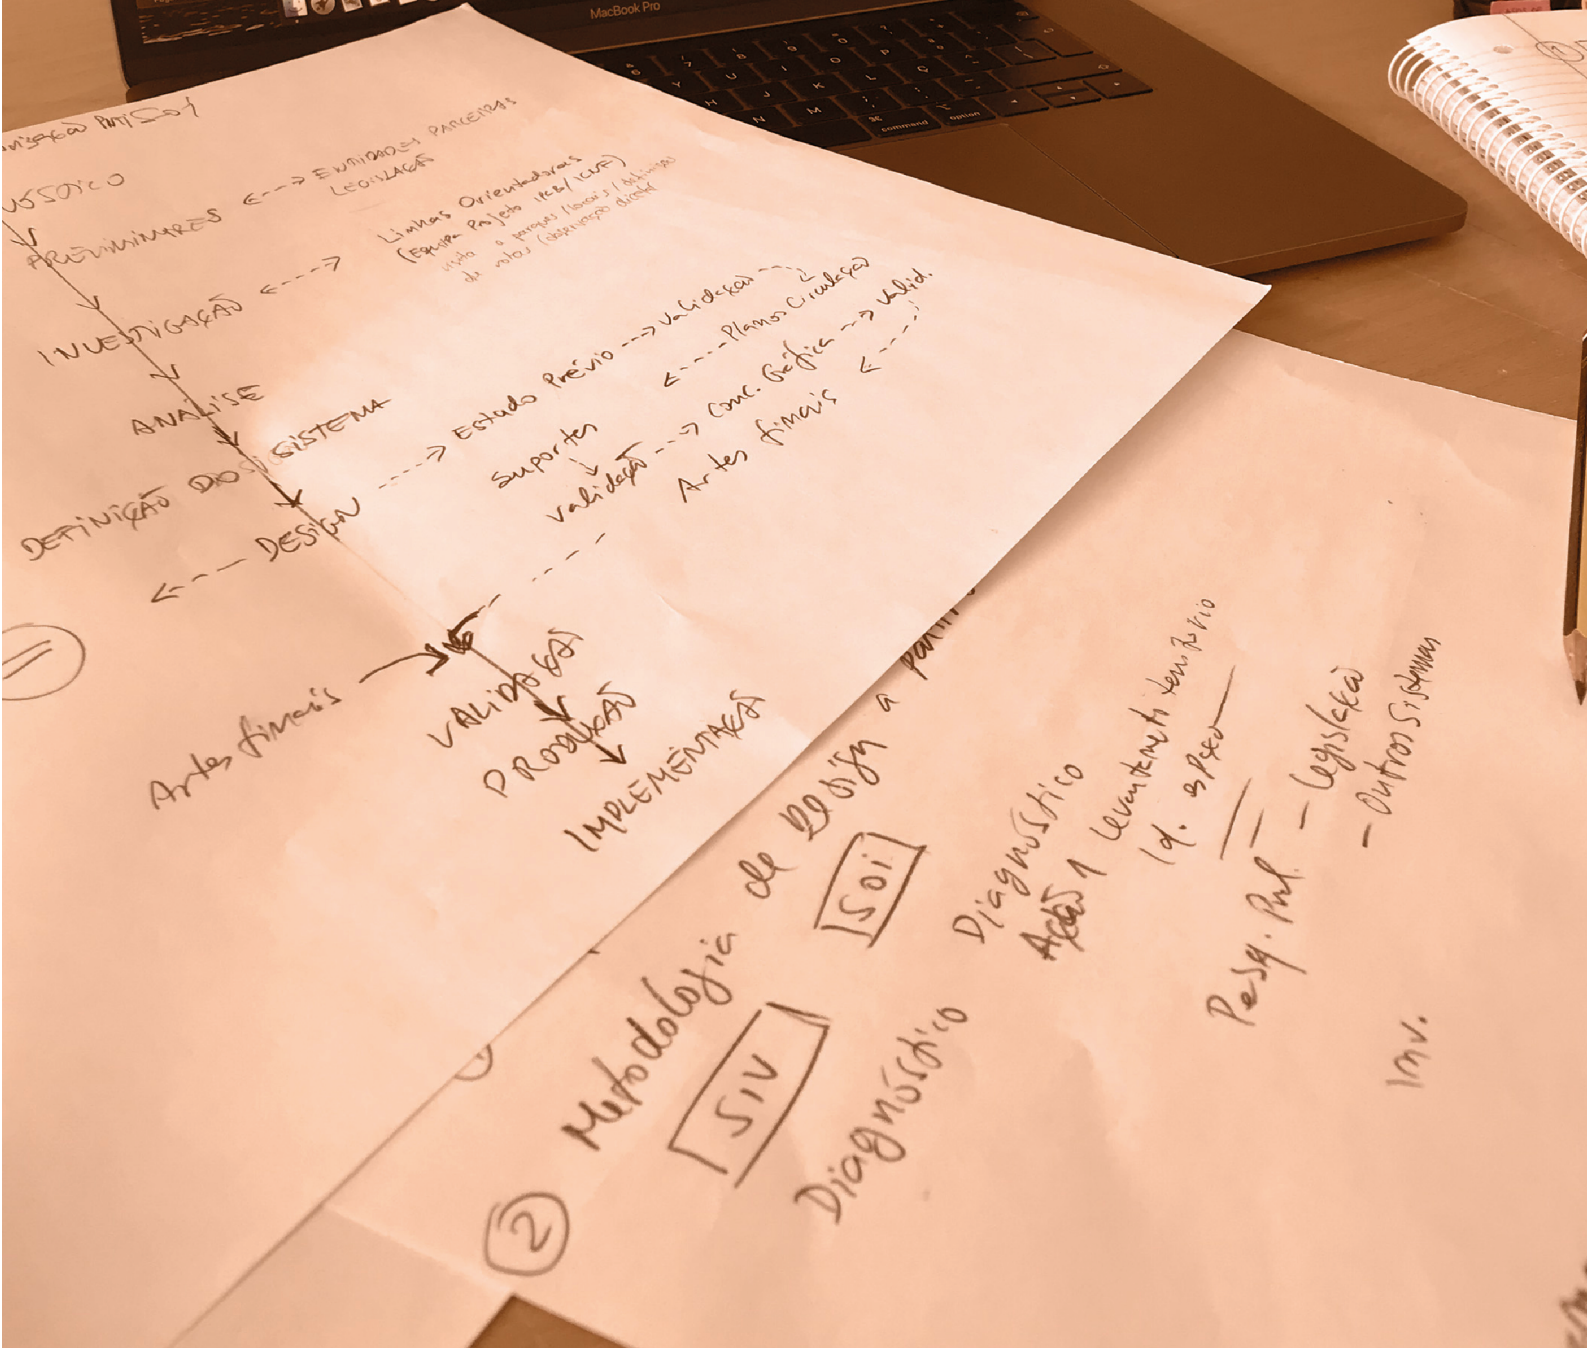 MacBook Pro
command
option
PRELIMINARES <---> ENTIDADES PARCEIRAS
LEGISLAÇÃO
INVESTIGAÇÃO <---> Linhas Orientadoras
(Equipa Projeto IPCB/ICNF)
visita a parques / locais /
de rotas (observação direta)
ANÁLISE
DEFINIÇÃO DO SISTEMA
<--- DESIGN ---> Estudo Prévio ---> Validação
<---- Planos Circulação
Suportes
Validação ---> Conc. Gráfica --> Valid.
Artes finais
Artes finais
VALIDAÇÃO
PRODUÇÃO
IMPLEMENTAÇÃO
2 Metodologia de Design a partir
SIV
SOi
Diagnóstico
Diagnóstico
Ação 1 Levantamento território
Id. espaço
Pesq. Prel. - Legislação
- Outros Sistemas
Inv.